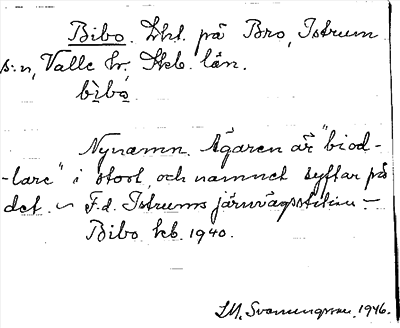 Bibo. Lht. på Bro, Istrum
s:n, Valle hr. Skb. län.
bìbó
Nynamn. Ägaren är "biod-
-lare" i stort, och namnet syftar på
det. – F.d. Istrums järnvägsstation –
Bibo kb. 1940.
1946.